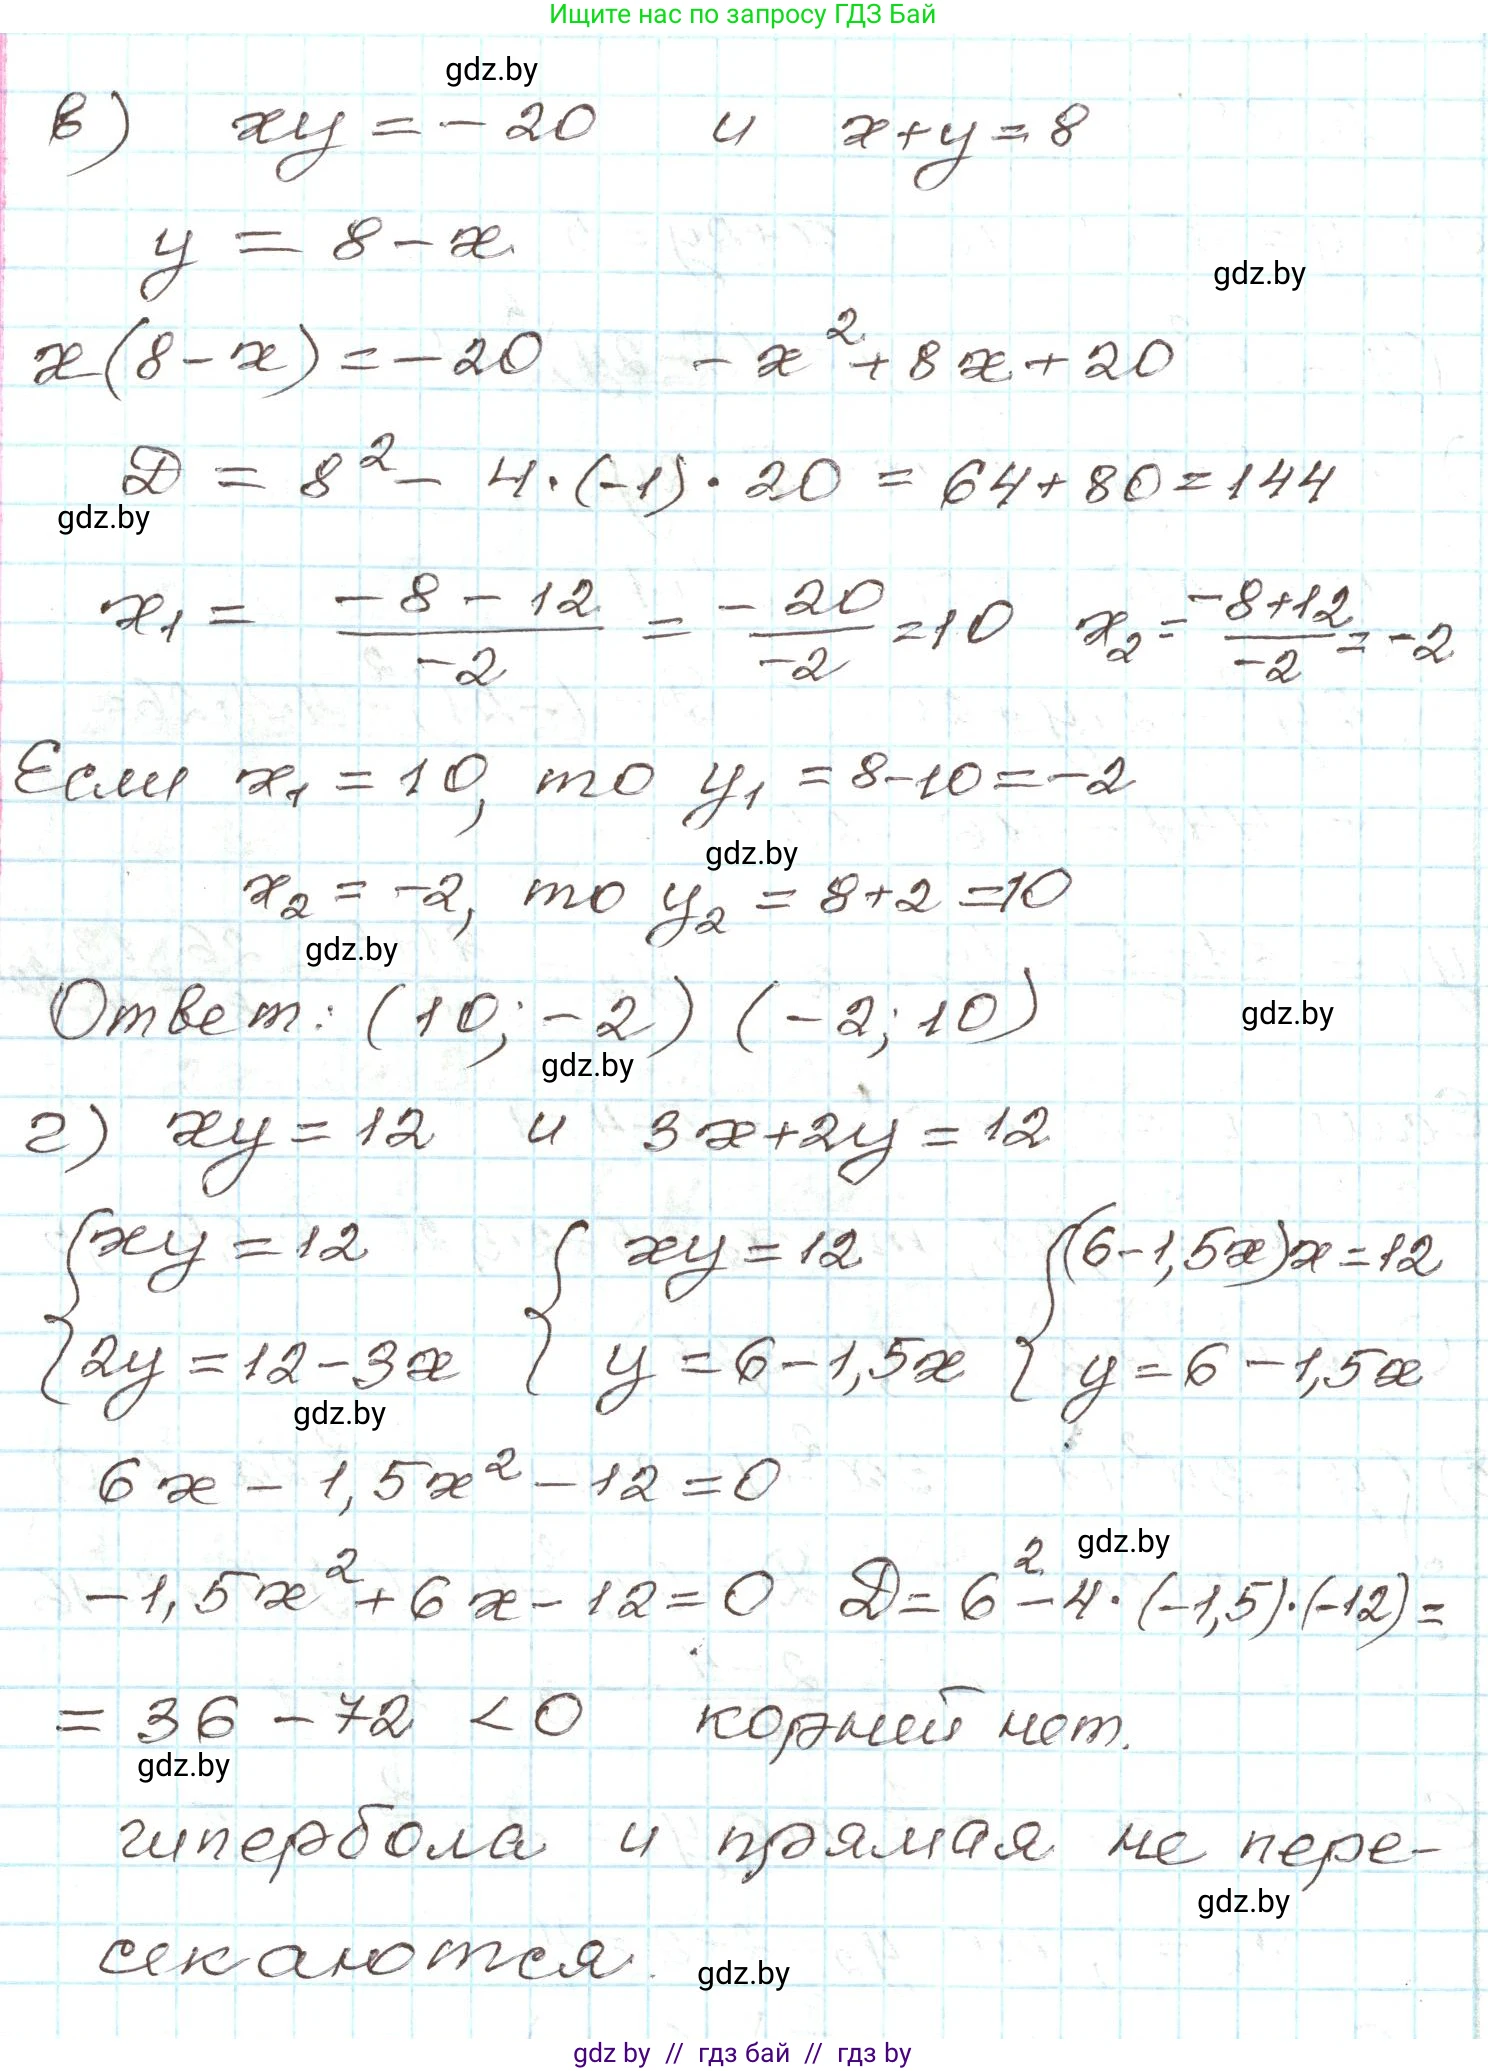 Ищите нас по запросу ГДЗ Бай
gdz.by
в) xy = -20 и x+y=8
y = 8-x
gdz.by
x(8-x) = -20 -x²+8x+20
D = 8² - 4·(-1)·20 = 64+80=144
gdz.by
x₁ = (-8-12)/(-2) = (-20)/(-2) = 10 x₂ = (-8+12)/(-2) = -2
Если x₁ = 10, то y₁ = 8-10=-2
gdz.by
x₂ = -2, то y₂ = 8+2=10
gdz.by
Ответ: (10; -2) (-2; 10)
gdz.by
gdz.by
г) xy = 12 и 3x+2y = 12
{xy = 12 {xy = 12 {(6-1,5x)x=12
{2y = 12-3x {y = 6-1,5x {y = 6-1,5x
gdz.by
6x - 1,5x² - 12 = 0
gdz.by
-1,5x² + 6x - 12 = 0 D = 6² - 4·(-1,5)·(-12) =
= 36 - 72 < 0 корней нет.
gdz.by
гипербола и прямая не пере-
gdz.by
секаются.
gdz.by
gdz by // гдз бай // гдз by